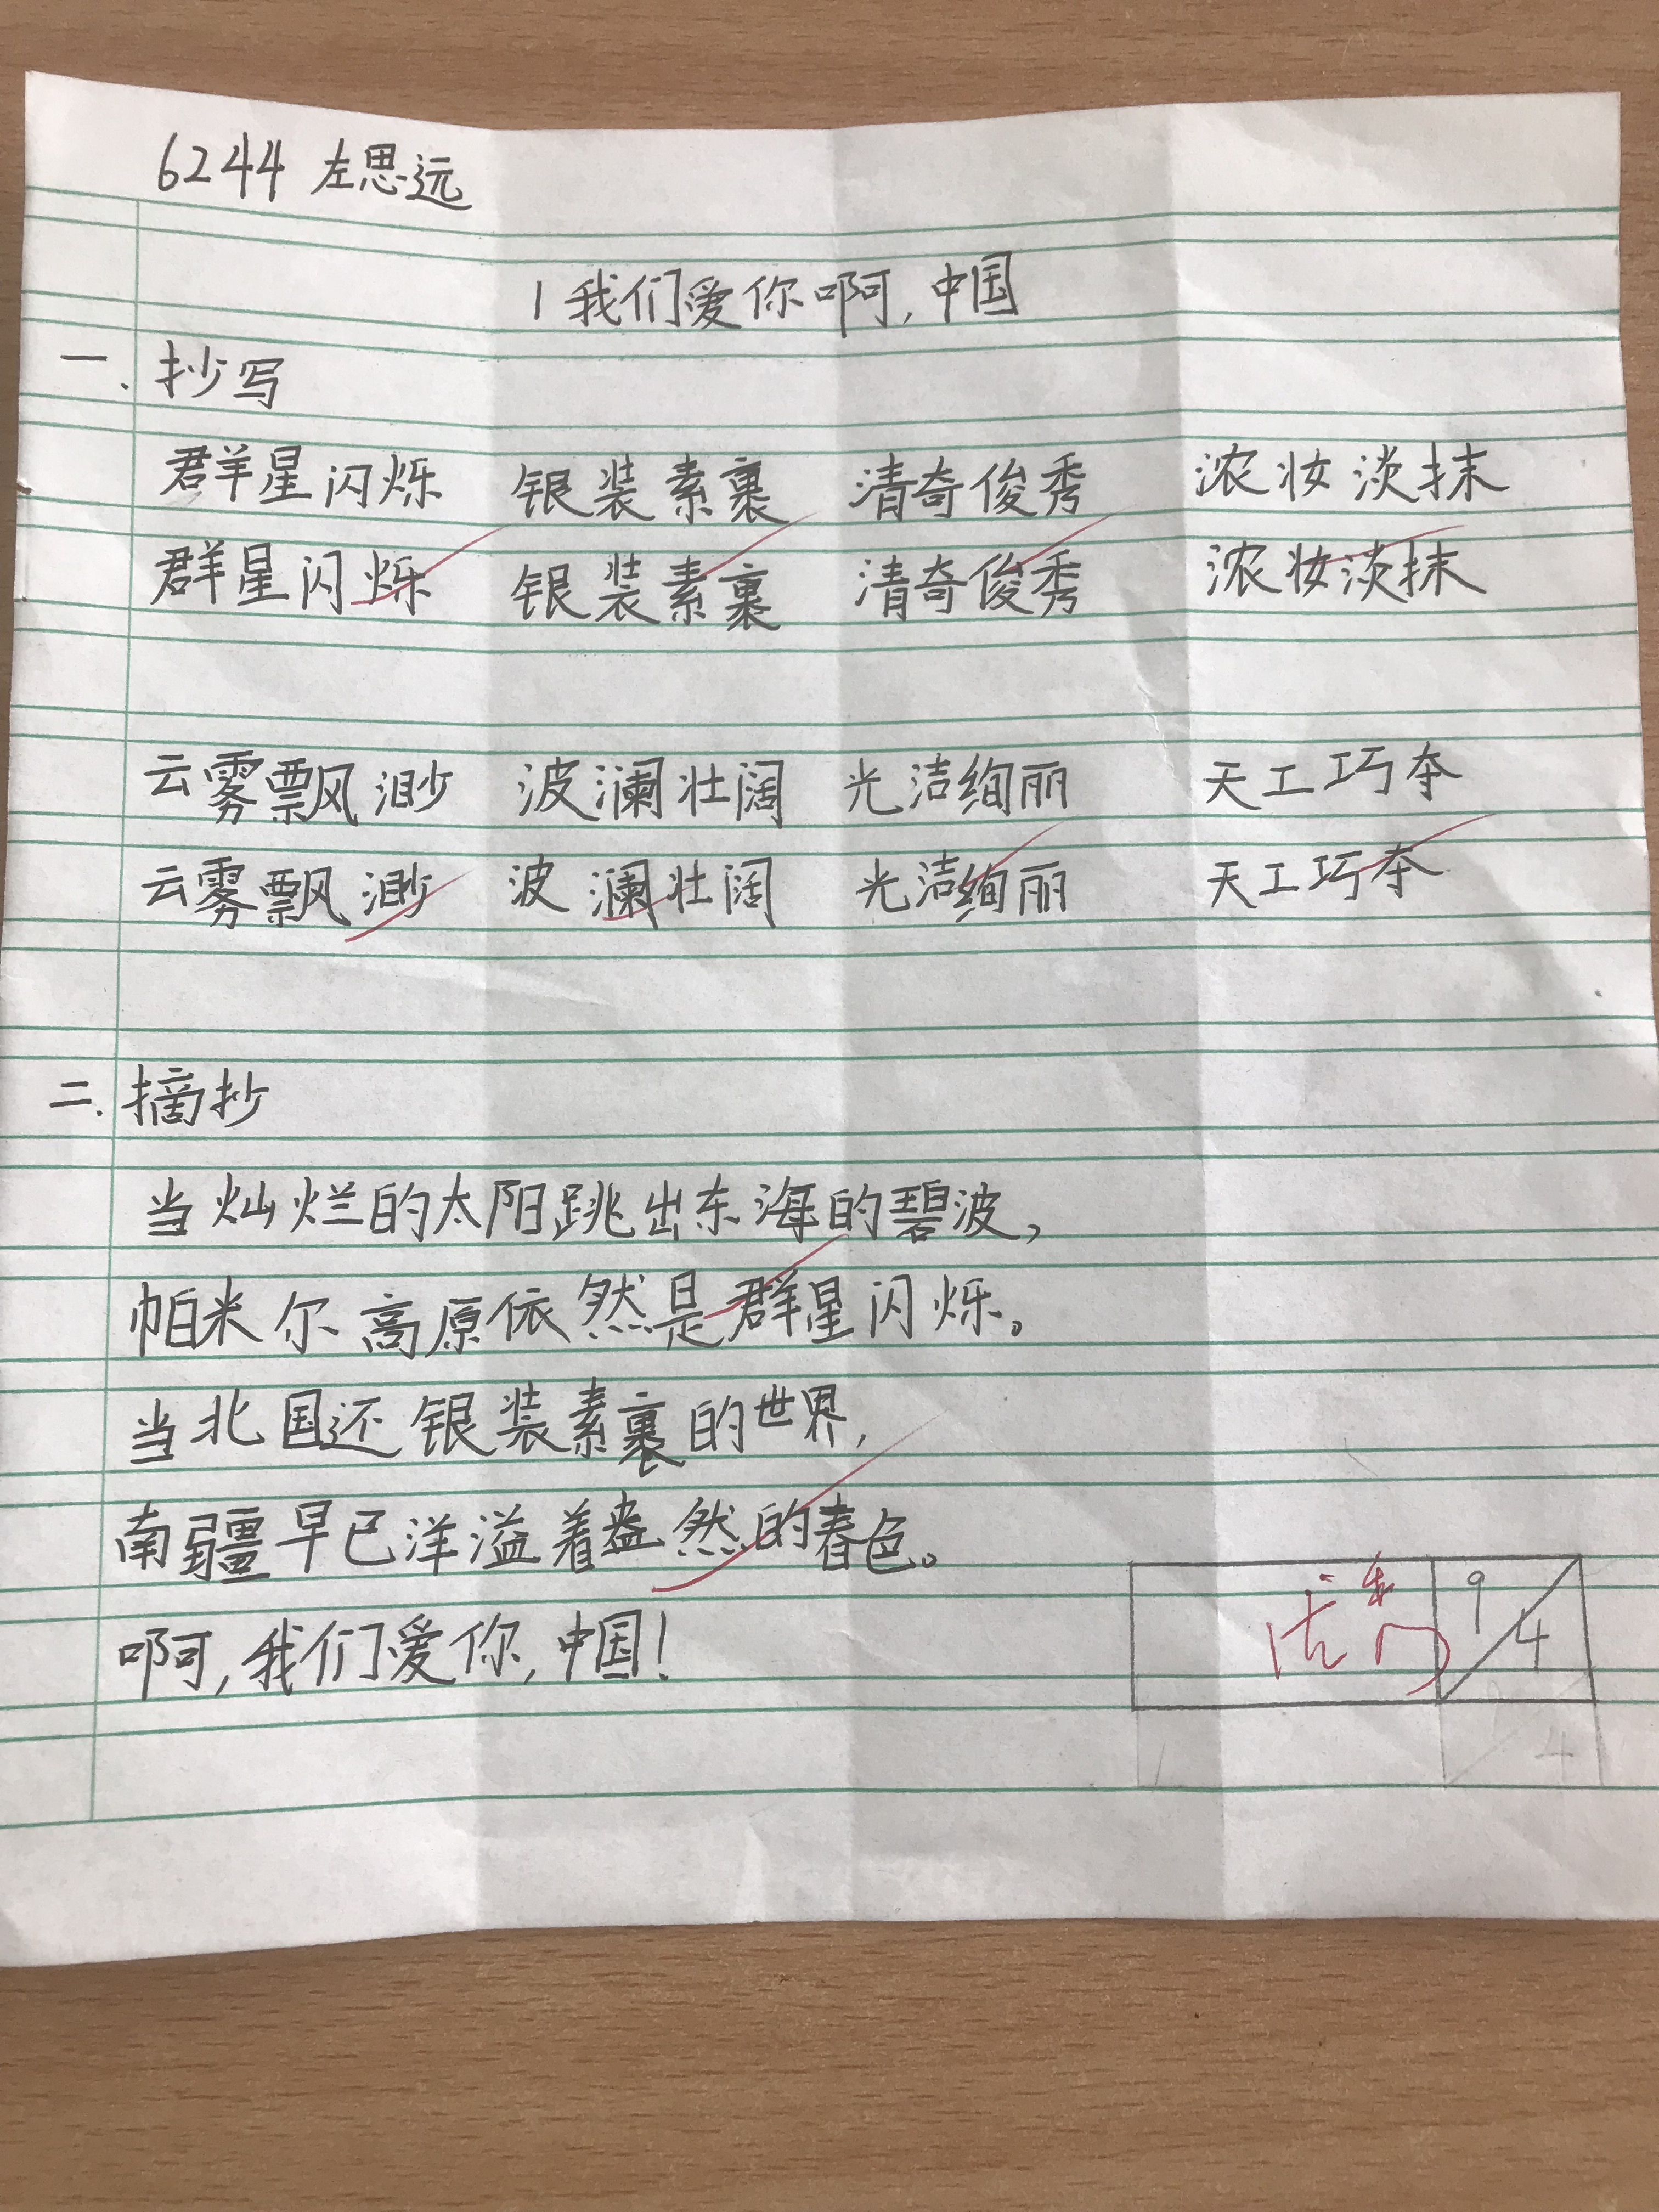 6244 左思远
1 我们爱你啊,中国
一.抄写
群星闪烁 银装素裹 清奇俊秀 浓妆淡抹
群星闪烁 银装素裹 清奇俊秀 浓妆淡抹
云雾飘渺 波澜壮阔 光洁绚丽 天工巧夺
云雾飘渺 波澜壮阔 光洁绚丽 天工巧夺
二.摘抄
当灿烂的太阳跳出东海的碧波,
帕米尔高原依然是群星闪烁。
当北国还银装素裹的世界,
南疆早已洋溢着盎然的春色。
啊,我们爱你,中国!
优秀 9/4
4